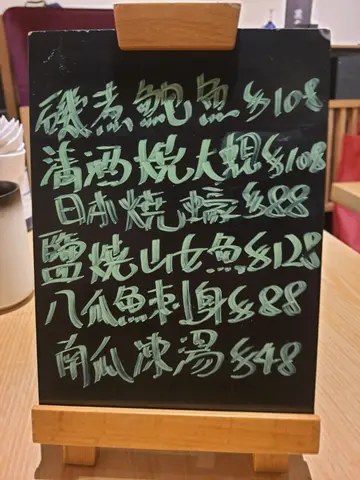 磯煮鮑魚 $108
清酒燒大蜆 $108
日本燒蠔 $88
鹽燒山女魚 $128
八爪魚刺身 $88
南瓜凍湯 $48